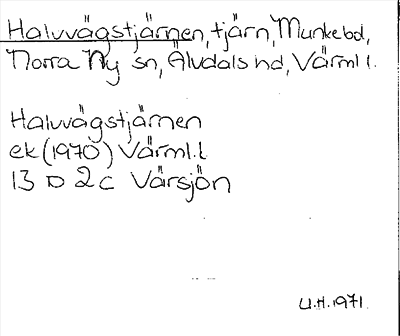 Halvvägstjärnen, tjärn, Munkebol,
Norra Ny sn, Älvdals hd, Värml l.
Halvvägstjärnen
ek (1970) Värml. l
13 D 2 c Vårsjön
U.H. 1971.